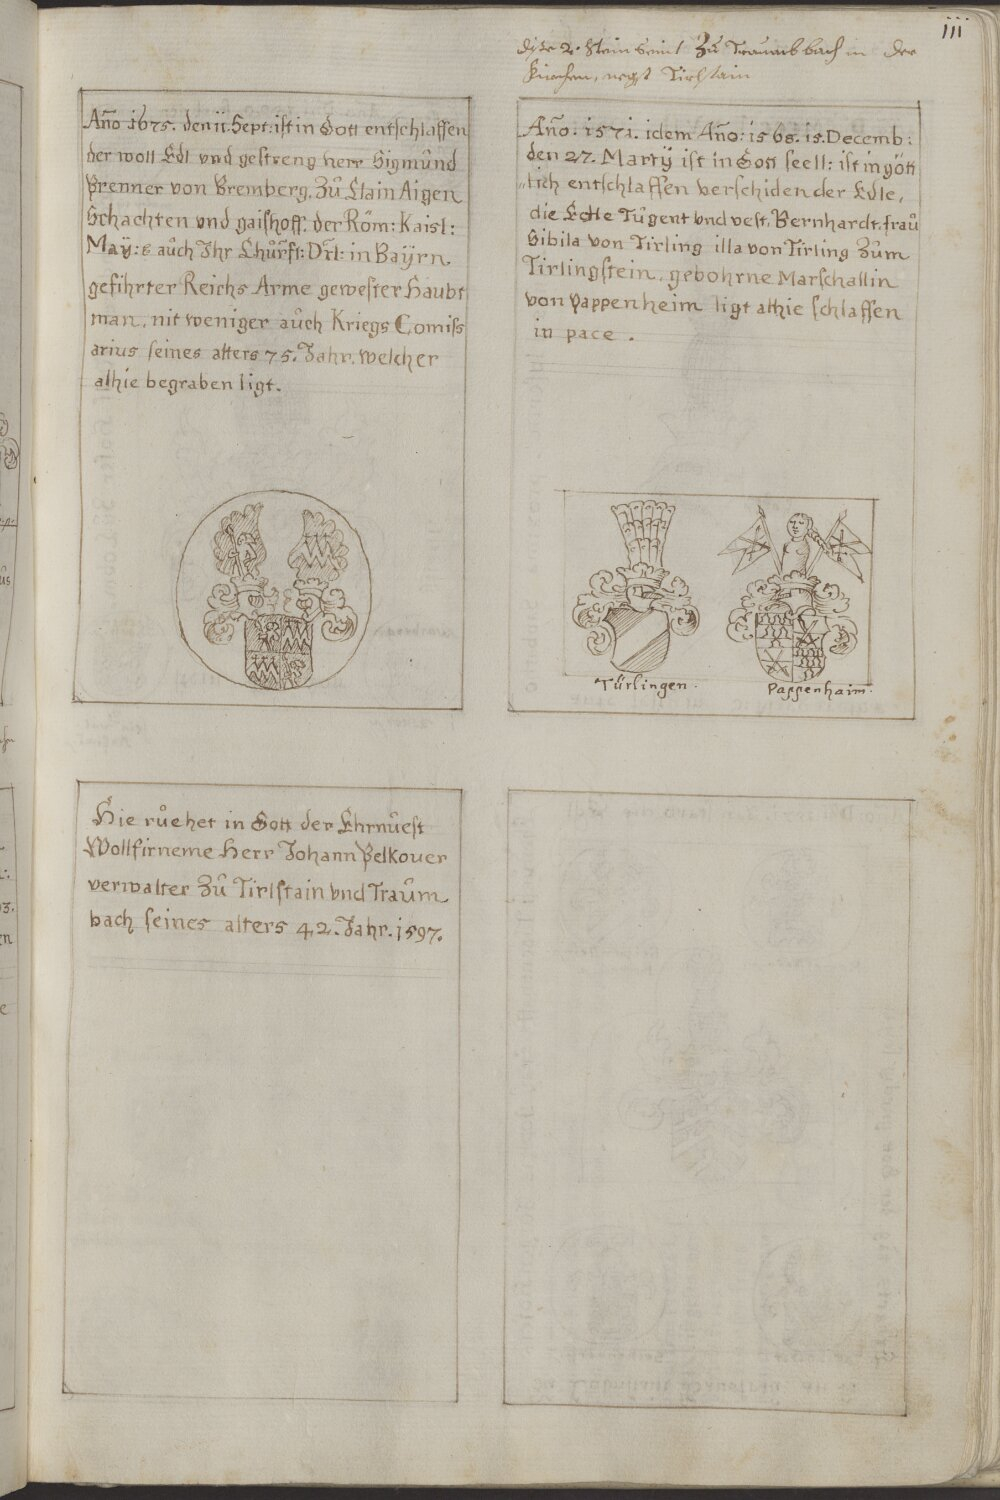 111
dise 2. Stein seint Zů Traumbbach in der
Kirchen, negst Tirlstain
Año 1675. den ii. Sept: ist in Gott entschlaffen
der woll Edl vnd gestreng herr Sigmůnd
Prenner von Bremberg, Zů Clain Aigen
Schachten vnd gaishoff. der Röm: Kaisl:
Maÿ: & aůch Ihr Chůrfl: Drl: in Baÿrn
gefihrter Reichs Arme gewester Haubt
man, nit weniger aůch Kriegs Comiss
arius seines alters 75. Jahr. welcher
alhie begraben ligt.
Año. 1571. idem Año: 1568. 15. Decemb:
den 27. Martÿ ist in Gott seell: ist in gött
„lich entschlaffen verschiden der Edle,
die Edle Tůgent vnd vest. Bernhardt. fraů
Sibila von Tirling illa von Tirling Zům
Tirlingstein. gebohrne Marschallin
von Pappenheim ligt alhie schlaffen
in pace.
Türlingen.
Pappenhaim.
Hie růehet in Gott der Ehrnůest
Wollfirneme Herr Johann Pelkover
verwalter Zů Tirlstain vnd Traům
bach seines alters 42. Jahr. 1597.